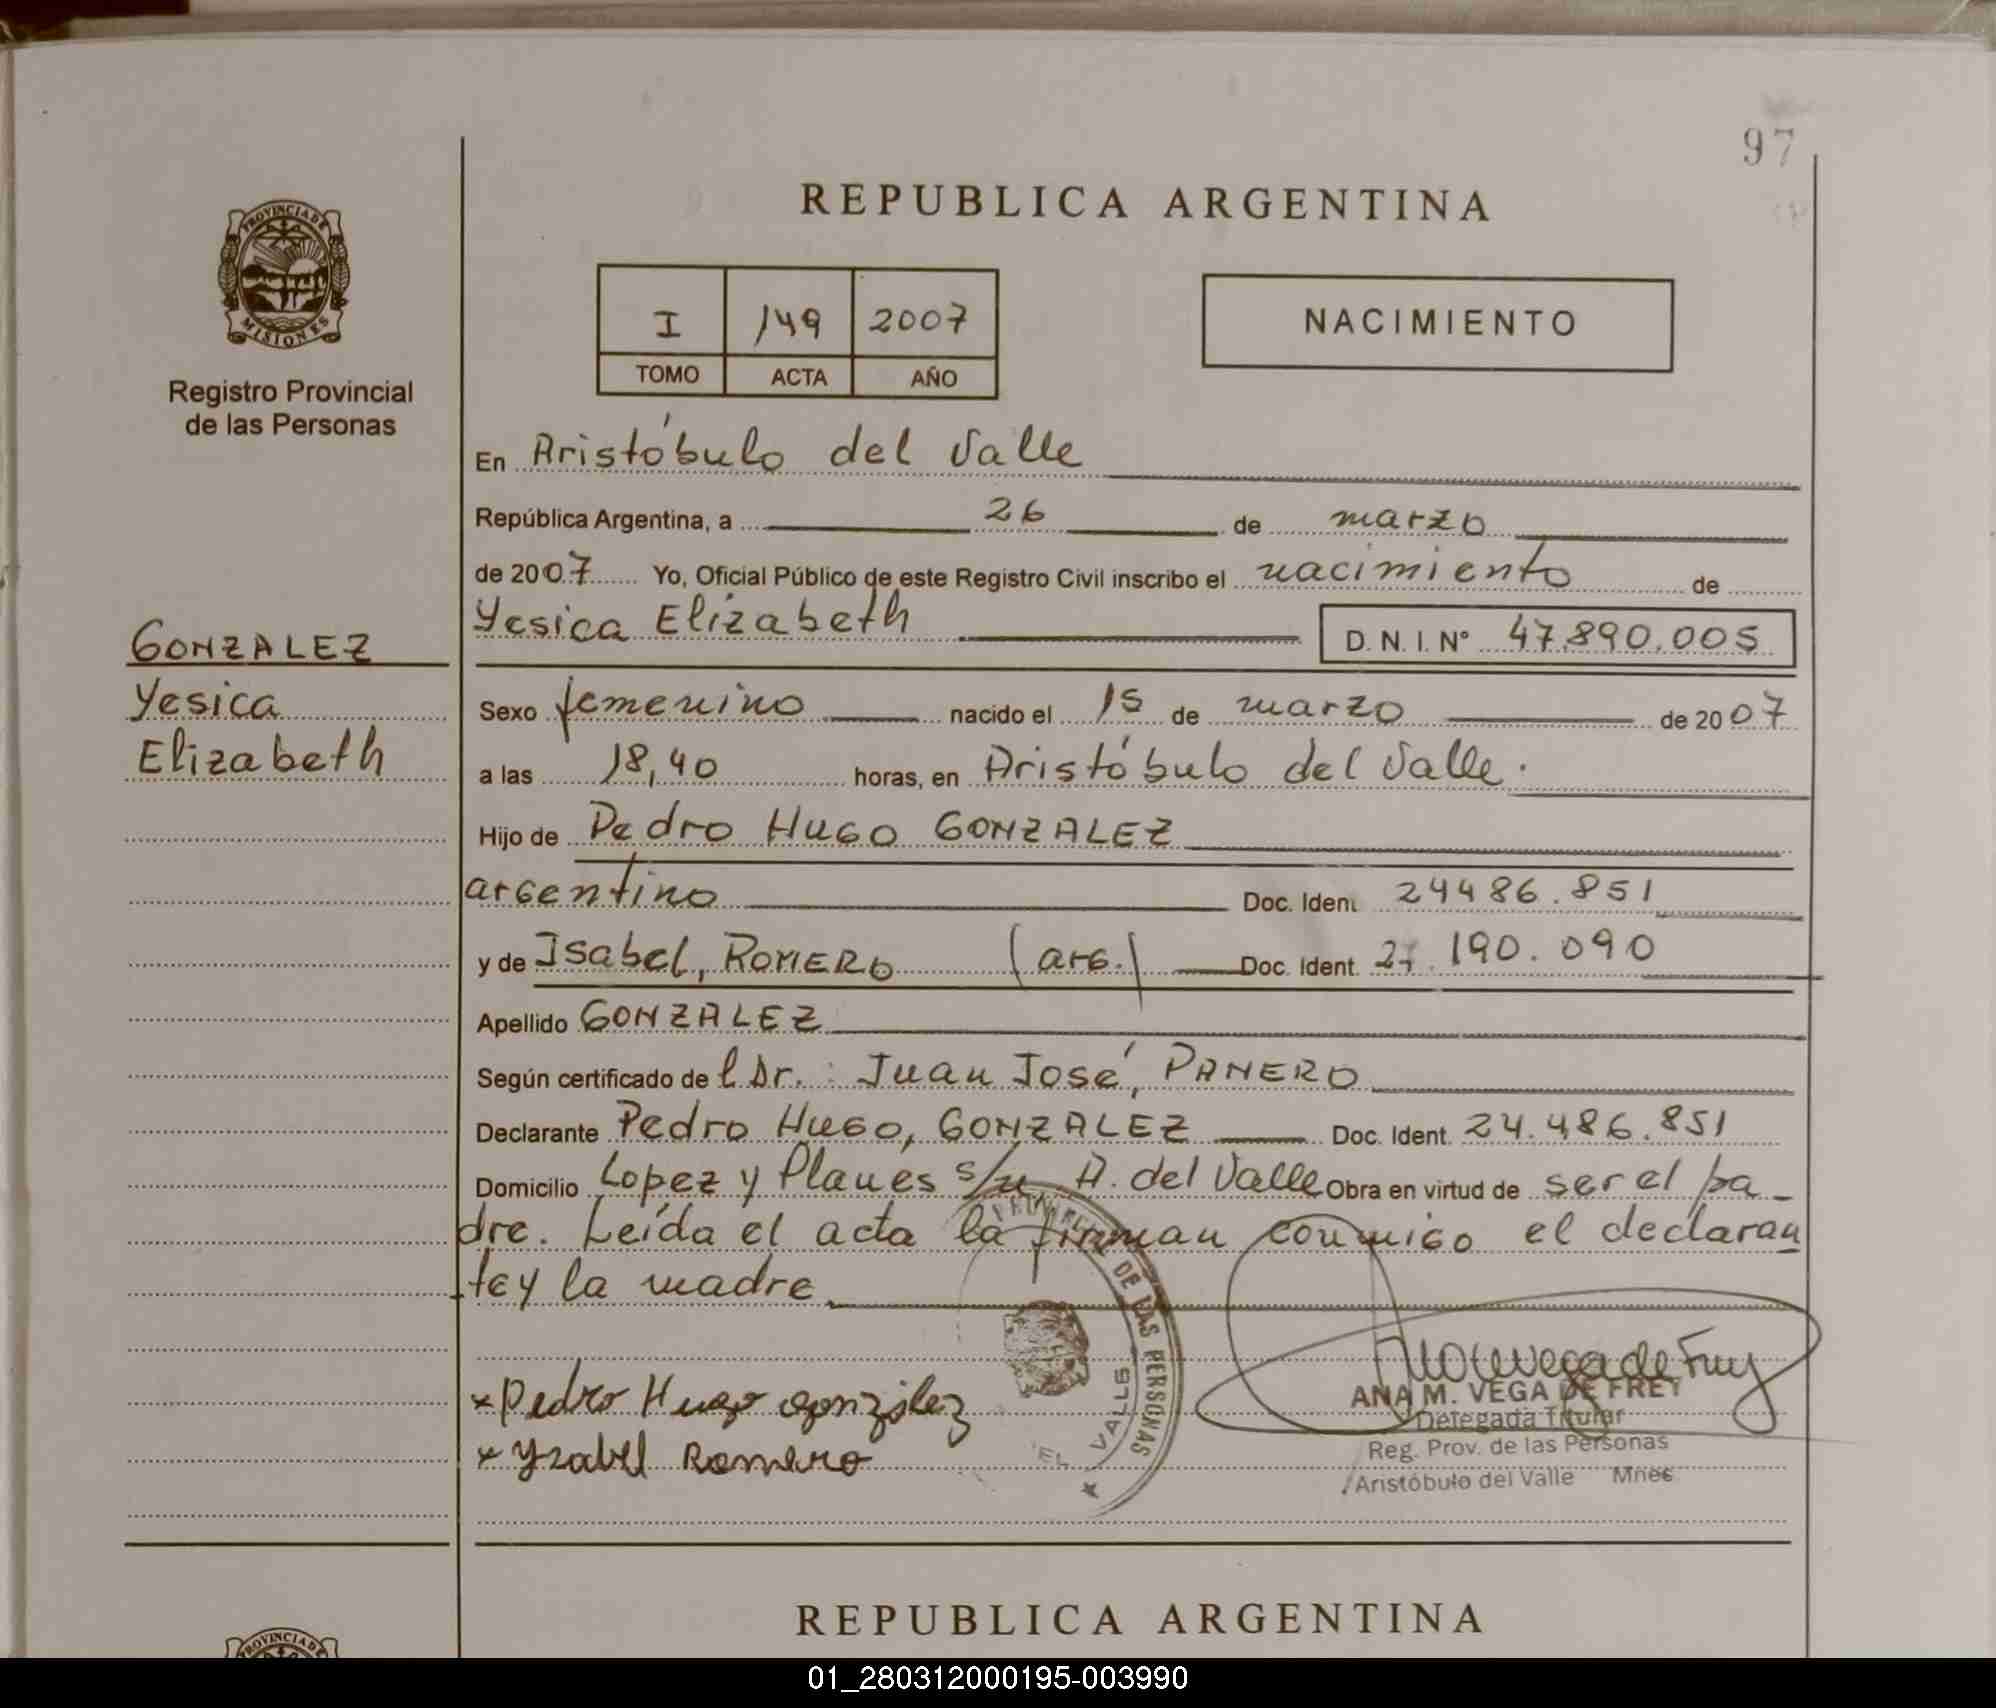 97
REPUBLICA ARGENTINA
PROVINCIA DE
MISIONES
Registro Provincial
de las Personas
I 149 2007
TOMO ACTA AÑO
NACIMIENTO
En Aristóbulo del Valle
República Argentina, a 26 de marzo
de 2007 Yo, Oficial Público de este Registro Civil inscribo el nacimiento de
Yesica Elizabeth D. N. I. N° 47.890.005
GONZALEZ
Yesica
Elizabeth
Sexo femenino nacido el 15 de marzo de 2007
a las 18,40 horas, en Aristóbulo del Valle.
Hijo de Pedro Hugo GONZALEZ
argentino Doc. Ident. 24486.851
y de Isabel, ROMERO (arg.) Doc. Ident. 27.190.090
Apellido GONZALEZ
Según certificado del Dr.: Juan José, PANERO
Declarante Pedro Hugo, GONZALEZ Doc. Ident. 24.486.851
Domicilio Lopez y Planes s/n A. del Valle Obra en virtud de ser el pa-
dre. Leída el acta la firman conmigo el declaran
te y la madre
x Pedro Hugo gonzález
x Yzabel Romero
DE LAS PERSONAS
EL VALLE
ANA M. VEGA DE FREY
Delegada Titular
Reg. Prov. de las Personas
Aristóbulo del Valle Mnes
PROVINCIA D
REPUBLICA ARGENTINA
01_280312000195-003990